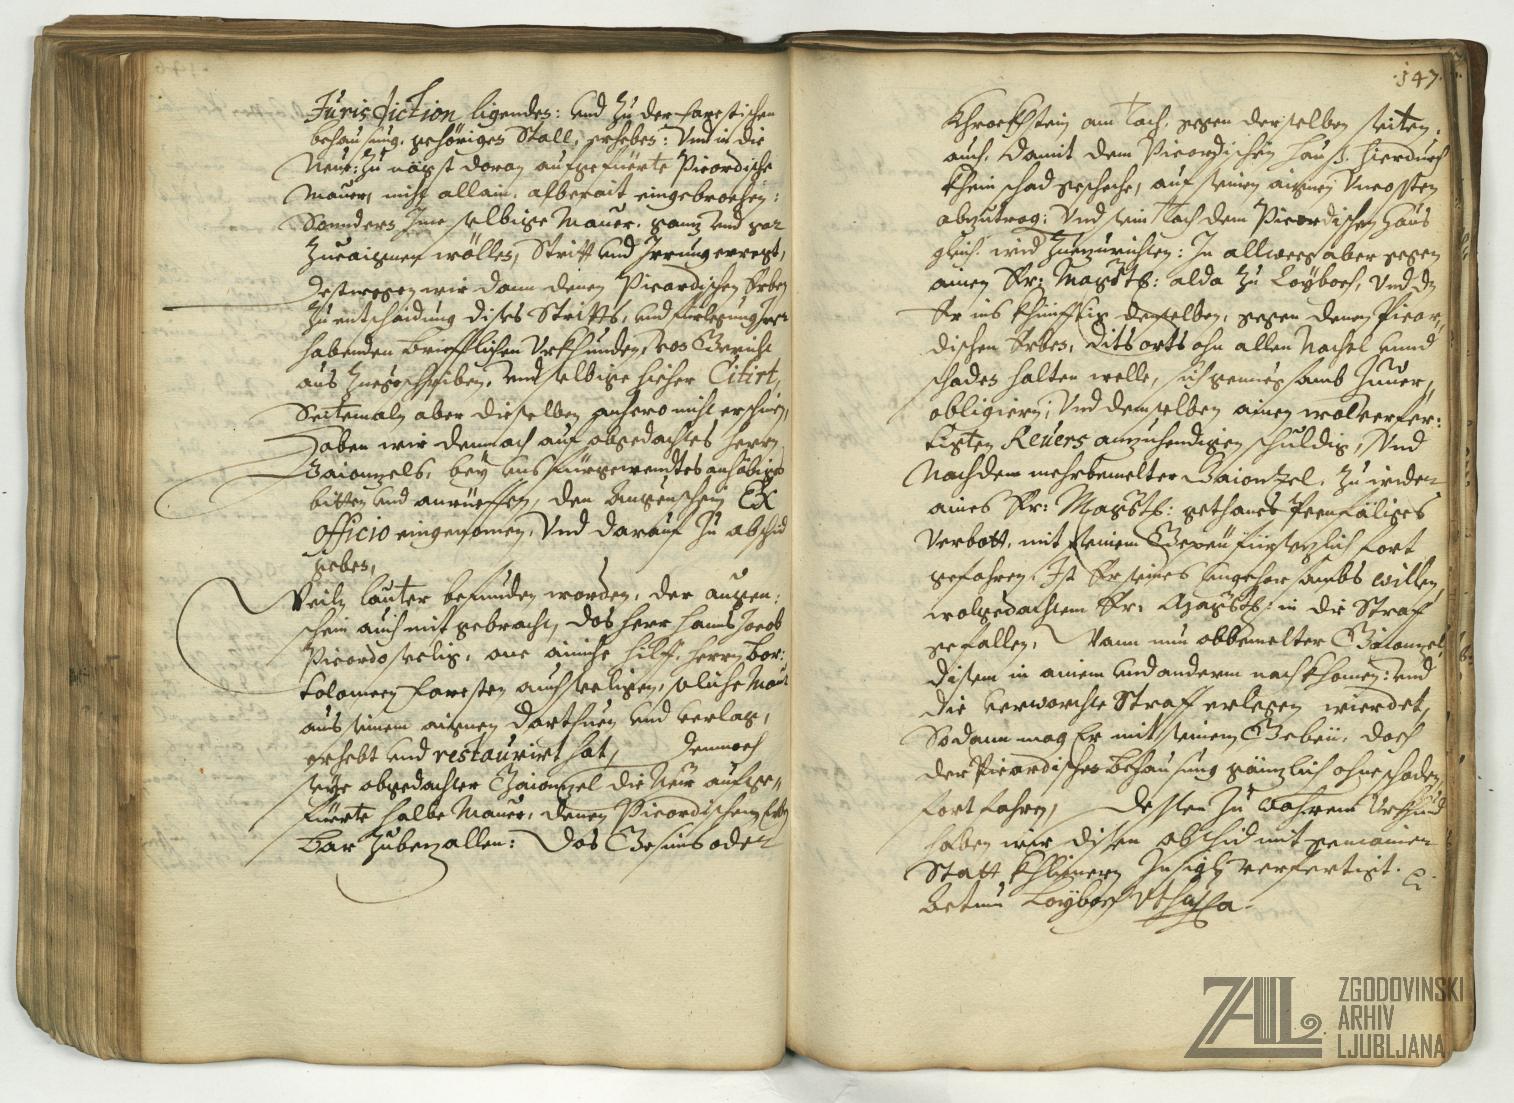 Jurisdiction ligendes: und zu der Farestischen
behausung, gehöriges Stall, erhebes: Und in die
Neue: zu nägst daran aufgefüerte Picardische
Mauer, nicht allain, alberait eingebrochen:
Sonnders Ime selbige Mauer, ganz und gar
Zueaignen wölles, Stritt und Irrung erregt,
Destwegen wir dann denen Picardischen Erben
Zu entschaidung dises Stritts, und fürlegung Irer
habenden brieflichen Urkhunden, vos Gericht
aus Zuegeschriben, und selbige hieher Citirt,
Seitemaln aber dieselben anhero nicht erschinen,
Haben wir dennach auf obgedachtes Herrn
bey uns fürgewendtes
bitten und anrüeffen, den Augenschein Ex
officio eingenomen, Und darauf Zu abschid
geben,
Weiln lauter befunden worden, der augen:
schein auch mit gebracht, das Herr Hanns Jacob
Picardo seelig, one ainiche hilff, Herrn Bar:
tolomeen Faresten auch seeligen, solche Maur
aus seinem aignen darthuen und verlag,
erhebt und restaurirt hat, Dennoch
seye obgedachter die Neu aufge„
füerte halbe Mauer, denen Picardischen Erben
bar Zubezallen: Das Gesims oder
147.
Khrackstein am Tach, gegen derselben seiten,
auch, damit dem Picardischen Hauß, hierdurch
khein schad geschehe, auf seinen aignen Uncosten
abzutrag: Und sein Tach dem Picardischen Haus
gleich, wid Zuezurichten: In allweeg aber gegen
ainen Er: Magist: alda Zu Laybach, Und dz
Er ins khünfftig denselben, gegen denen Picar„
dischen Erbes, dits orts ohn allen Nachtl unnd
schades halten welle, sich genueg samb
obligiern; Und demselben ainen wolverfer:
tigten Revers anzuhendigen schuldig, Und
Nachdem mehrbemelter Zu wider
aines Er: Magist: gethanes Peenfäliges
Verbott, mit seinem Gepeü fürsezlich fort
gefahren, Ist Er seines ungehorsambs willen,
wolgedachtem Er: Magist: in die Straf
gefallen, Wann nun obbemelter
disem in ainem und anderm nachkhomen: und
die verworchte Straff erlegen wierdet,
Sodann mag Er mit seinem Gebeü, doch
der Picardischen behausung gänzlich ohne schaden
fort fahren, Dessen Zu wahrem Urkhund
haben wir disen abschid mit gemainer
Statt khlainern Insigl verfertigt.
Laybach
ZAL
ZGODOVINSKI
ARHIV
LJUBLJANA